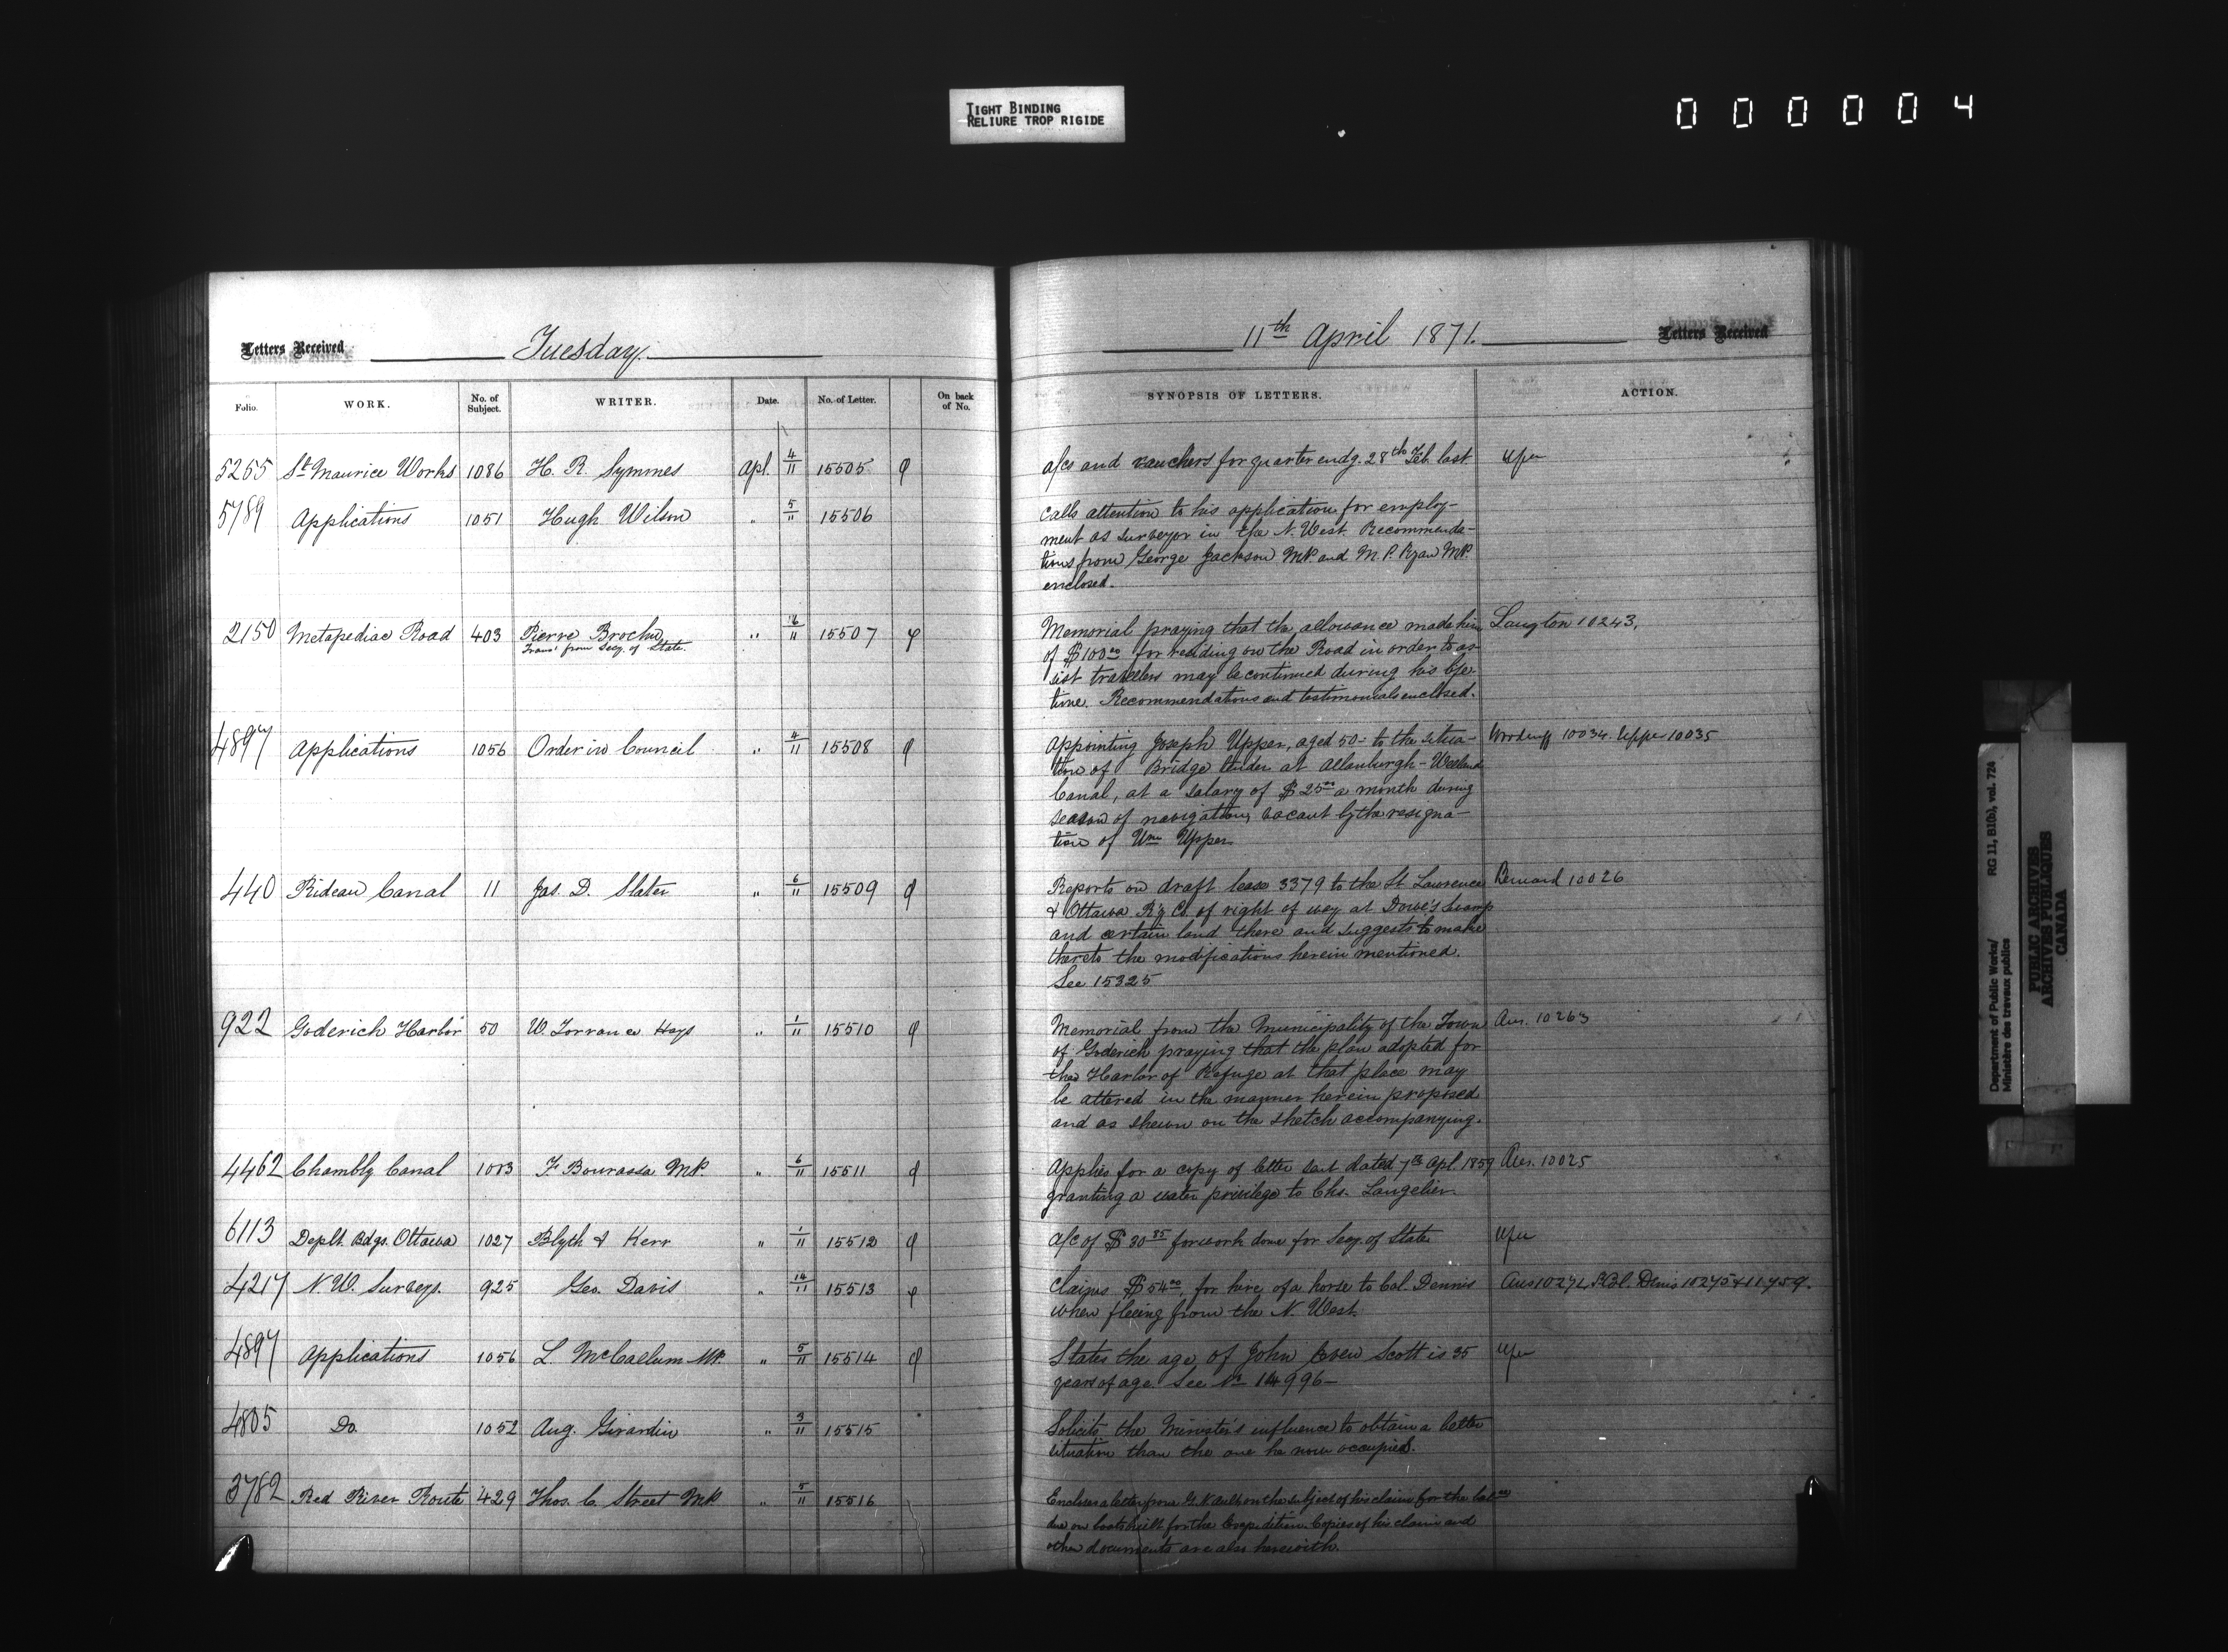 TIGHT BINDING
RELIURE TROP RIGIDE
000004
Letters Received
Tuesday
11th April 1871.
Letters Received
Folio. WORK. No. of Subject. WRITER. Date. No. of Letter. On back of No. SYNOPSIS OF LETTERS. ACTION.
5255 St Maurice Works 1086 H. R. Symmes Apl. 4/11 15505 a/cs and vouchers for quarter endg. 28th Feb. last
5789 Applications 1051 Hugh Wilson " 5/11 15506 Calls attention to his application for employ-
ment as surveyor in the N. West. Recommenda-
tions from George Jackson MP. and M. P. Ryan MP.
enclosed.
2150 Metapediac Road 403 Pierre Brochu " 6/11 15507 Memorial praying that the allowance made him Langton 10243.
Trans' from Secy. of State.
of $100 00 for residing on the Road in order to as-
sist travellers may be continued during his life-
time. Recommendations and testimonials enclosed.
4897 Applications 1056 Order in Council " 4/11 15508 Appointing Joseph Upper, aged 50 - to the situa- Woodruff 10034. Upper 10035
tion of Bridge tender at Allanburgh - Welland
Canal, at a salary of $25 00 a month during
season of navigation, vacant by the resigna-
tion of Wm Upper.
440 Rideau Canal 11 Jas. D. Slater " 6/11 15509 Reports on draft lease 3379 to the St. Lawrence Bernard 10026
& Ottawa R'y Co. of right of way at Dowe's Swamp
and certain land there and suggests to make
thereto the modifications herein mentioned.
See 15325
922 Goderich Harbor 50 W. Torrance Hays " 1/11 15510 Memorial from the Municipality of the Town Ans. 10263
of Goderich praying that the plan adopted for
the Harbor of Refuge at that place may
be altered in the manner herein proposed
and as shewn on the sketch accompanying.
4462 Chambly Canal 1083 F. Bourassa MP. " 6/11 15511 Applies for a copy of letter sent dated 7th Apl. 1859 Ans. 10025
granting a water privilege to Chs. Langelier.
6113 Deptl. Bdgs. Ottawa 1027 Blyth & Kerr " 1/11 15512 a/c of $30 85 for work done for Secy. of State
4217 N. W. Surveys. 925 Geo. Davis " 14/11 15513 Claims $54 00 for hire of a horse to Col. Dennis
when fleeing from the N. West.
4897 Applications 1056 L. McCallum MP. " 5/11 15514 States the age of John Scott is 35
years of age. See No 14996 -
4805 Do. 1052 Aug. Girardin " 3/11 15515 Solicits the Minister's influence to obtain a better
situation than the one he now occupies.
3782 Red River Route 429 Thos. C. Street MP. " 5/11 15516 Encloses a letter from G. N. Ault on the subject of his claim for the balce
due on boats built for the Expedition. Copies of his claim and
other documents are also herewith.
Department of Public Works/ RG 11, B1(b), vol. 724
Ministère des travaux publics
PUBLIC ARCHIVES
ARCHIVES PUBLIQUES
CANADA